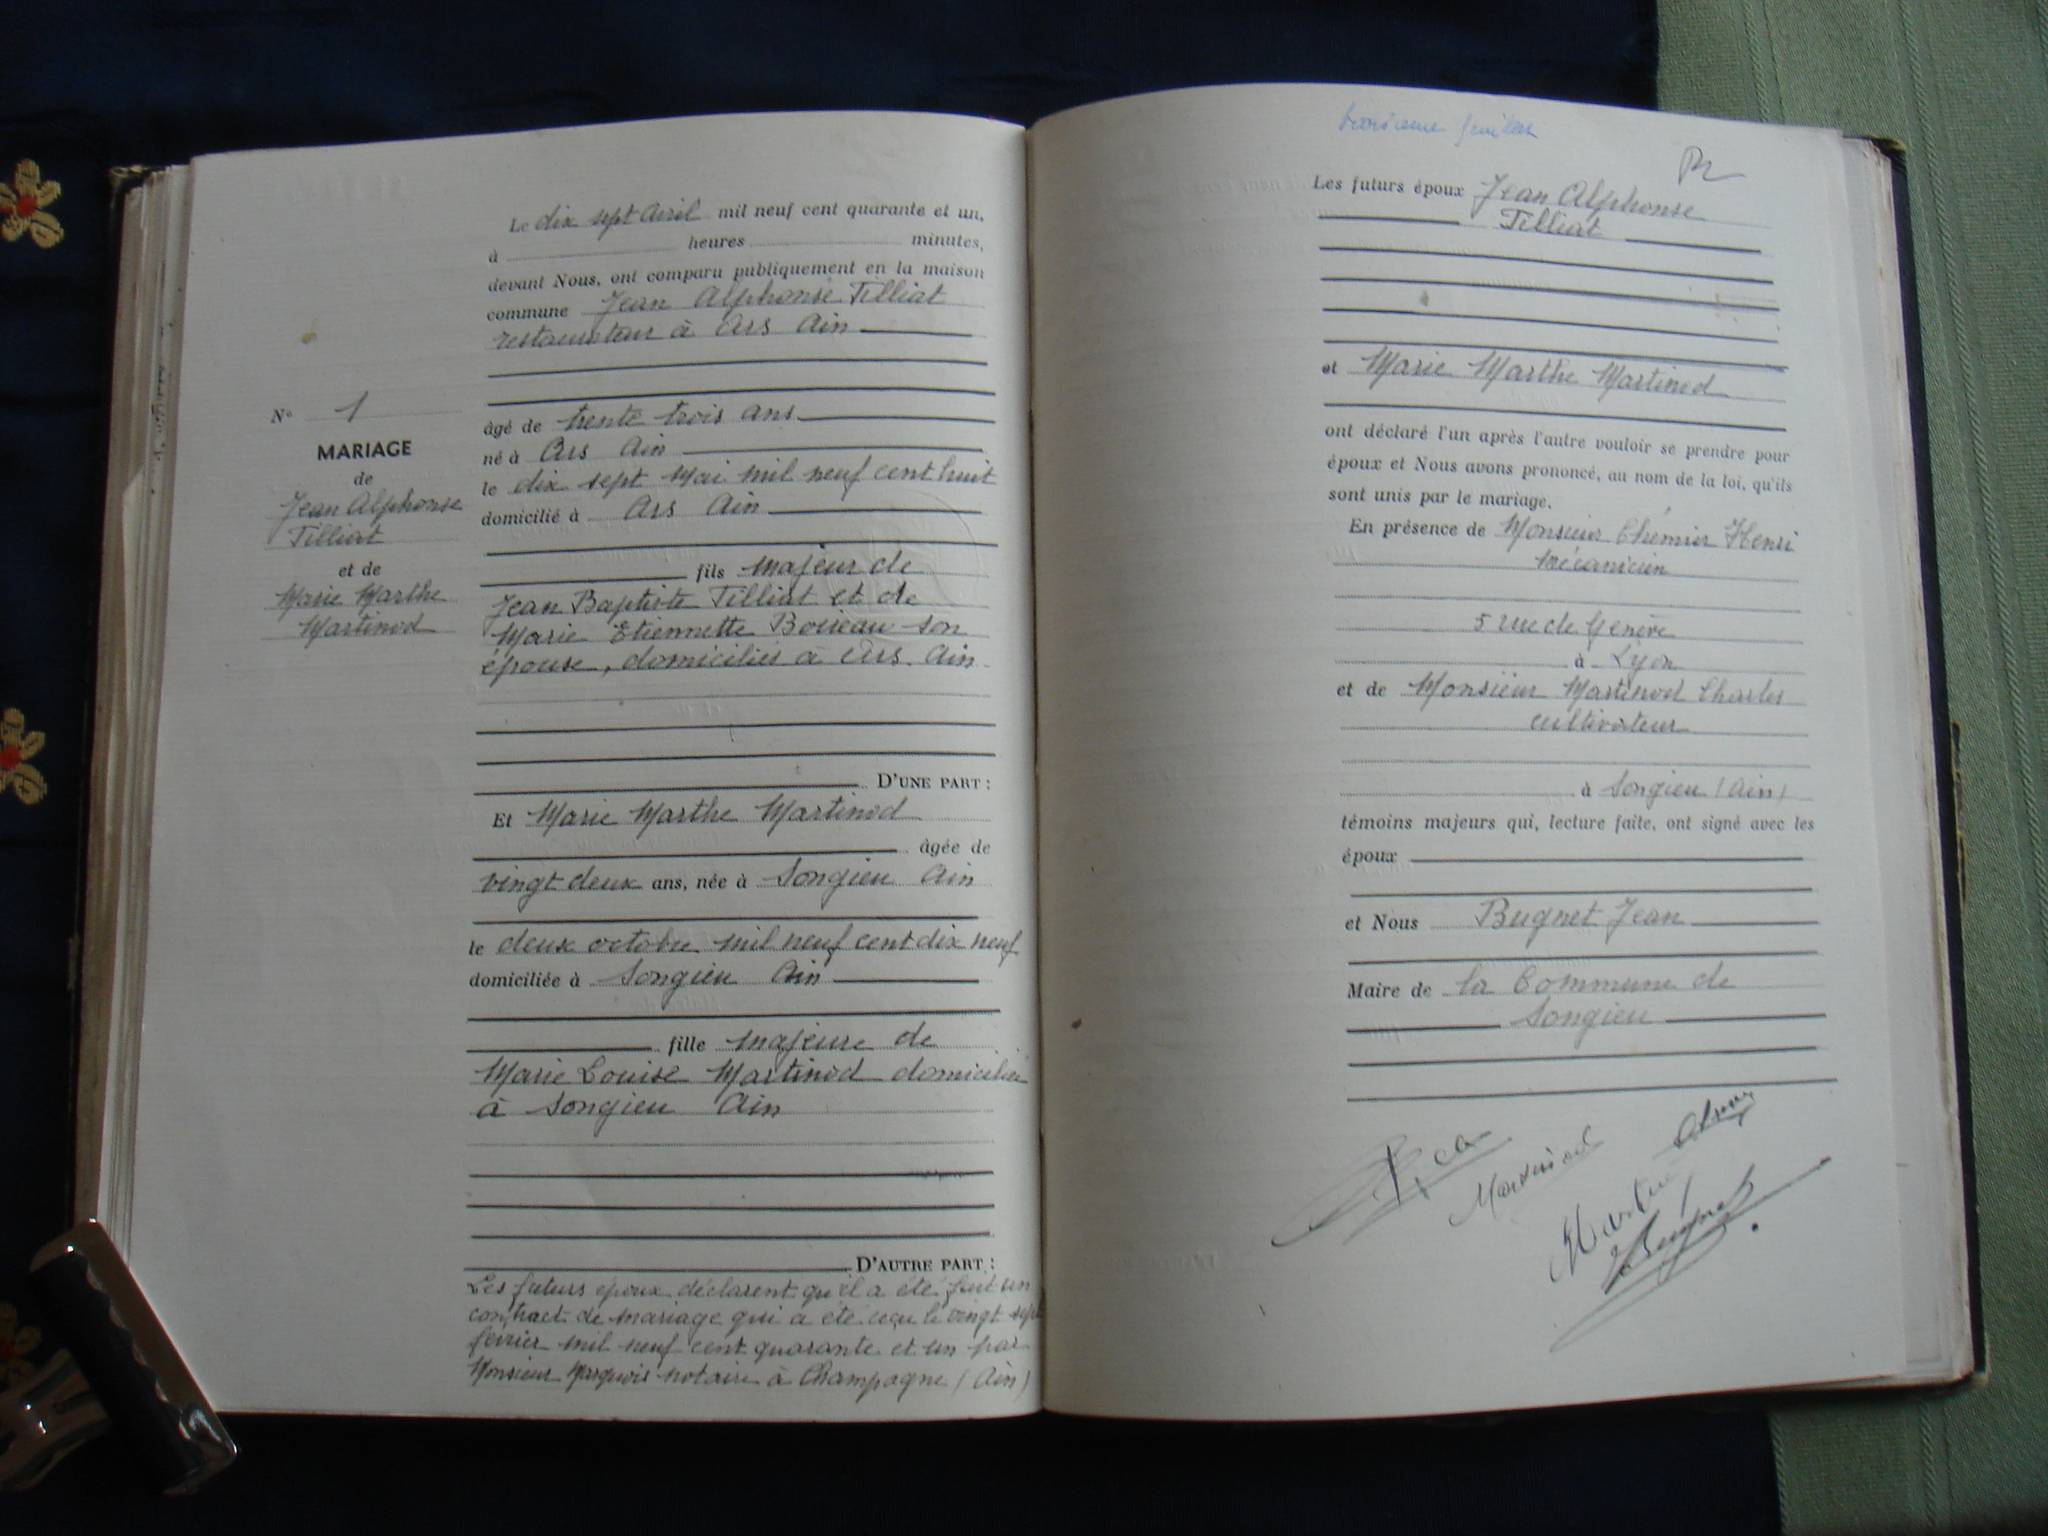 N° 1
MARIAGE
de
Jean Alphonse
Tilliat
et de
Marie Marthe
Martinod
Le dix sept Avril mil neuf cent quarante et un,
à heures minutes,
devant Nous, ont comparu publiquement en la maison
commune Jean Alphonse Tilliat
restaurateur à Ars Ain
âgé de trente trois ans
né à Ars Ain
le dix sept Mai mil neuf cent huit
domicilié à Ars Ain
fils majeur de
Jean Baptiste Tilliat et de
Marie Etiennette son
épouse, domiciliés à Ars Ain
D'UNE PART :
Et Marie Marthe Martinod
âgée de
vingt deux ans, née à Songieu Ain
le deux octobre mil neuf cent dix neuf
domiciliée à Songieu Ain
fille majeure de
Marie Louise Martinod domiciliée
à Songieu Ain
D'AUTRE PART :
Les futurs époux déclarent qu'il a été fait un
contract de mariage qui a été reçu le vingt sept
février mil neuf cent quarante et un par
Monsieur notaire à Champagne (Ain)
Les futurs époux Jean Alphonse
Tilliat
et Marie Marthe Martinod
ont déclaré l'un après l'autre vouloir se prendre pour
époux et Nous avons prononcé, au nom de la loi, qu'ils
sont unis par le mariage.
En présence de Monsieur Chémier Henri
Mécanicien
5 rue de Genève
à Lyon
et de Monsieur Martinod Charles
cultivateur
à Songieu (Ain)
témoins majeurs qui, lecture faite, ont signé avec les
époux
et Nous Bugnet Jean
Maire de la Commune de
Songieu
Martinod
Bugnet